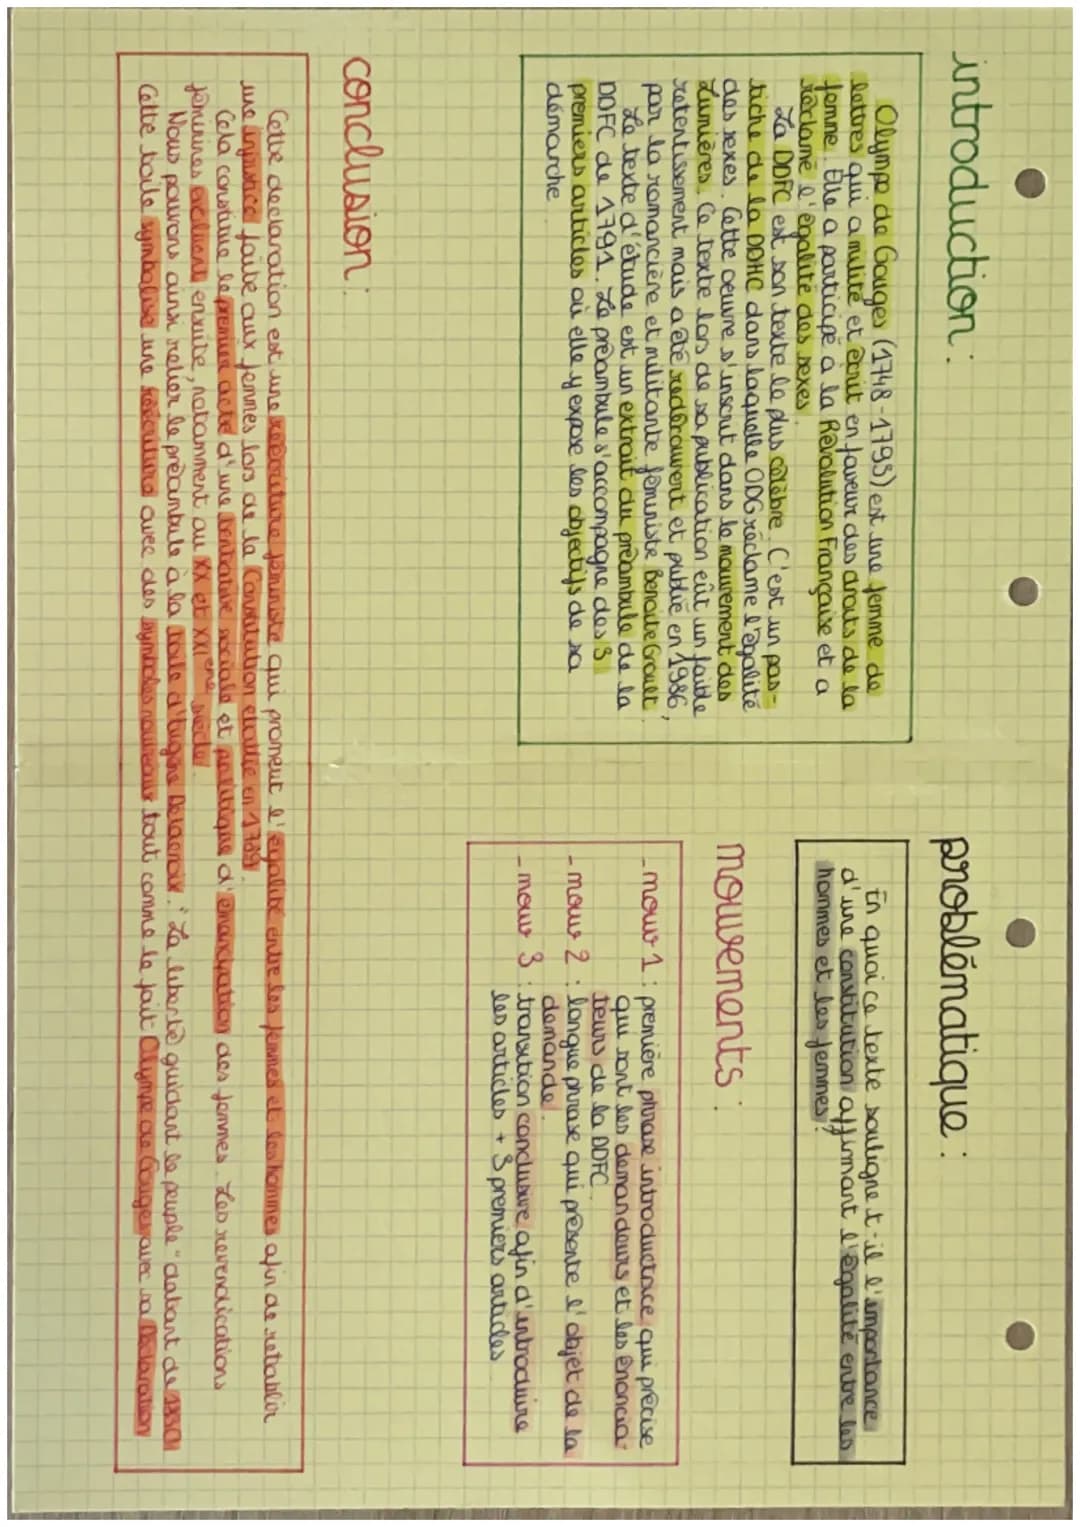 introduction :
Olympe de Gouges (1748-1793) est une femme de
lettres qui a milité et écrit en faveur des droits de la
femme. Elle a participé à la Révolution Française et a
réclamé l'égalité des sexes.
La DDFC est son texte le plus célèbre. C'est un pas-
tiche de la DDHC dans laquelle ODG réclame l'égalité
des sexes. Cette oeuvre s'inscrit dans le mouvement des
Lumières. Ce texte lors de sa publication eût un faible
retentissement mais a été redécouvert et publié en 1986,
par la romancière et militante féministe Benoîte Groult.
Le texte d'étude est un extrait du préambule de la
DDFC de 1791. Le préambule s'accompagne des 3
premiers articles où elle y expose les objectifs de sa
démarche
problématique :
En quoi ce texte souligne t-il l'importance
d'une constitution affirmant l'égalité entre les
hommes et les femmes ?
mouvements :
- mouv 1 : première phrase introductrice qui précise
qui sont les demandeurs et les énoncia-
teurs de la DDFC.
- mouv 2 : longue phrase qui présente l'objet de la
demande.
- mouv 3 : transition conclusive afin d'introduire
les articles + 3 premiers articles
conclusion :
Cette declaration est une réécriture féministe qui promeut l'égalité entre les femmes et les hommes afin de retablir
une injustice faite aux femmes lors de la Constitution etablie en 1789
Cela constitue le premier acte d'une tentative sociale et politique d'émancipation des femmes. Les revendications
féminines évoluent ensuite, notamment au XX et XXI ème siècle.
Nous pouvons ainsi relier le préambule à la toile d'Eugène Delacroix : "La liberté guidant le peuple" datant de 1830
Cette toile symbolise une réécriture avec des symboles nouveaux tout comme le fait Olympe de Gouges avec sa Déclaration